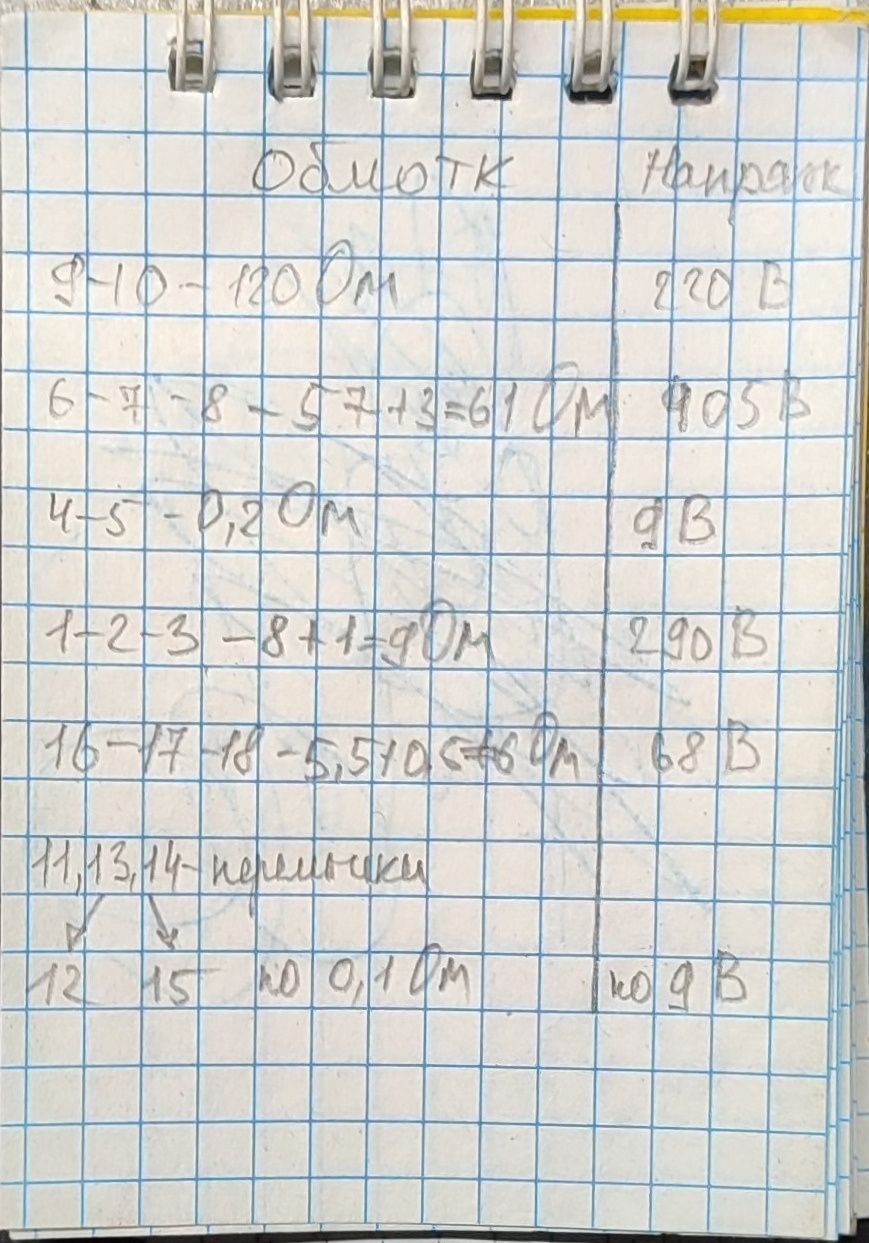 Обмотк Напряж
9-10 - 120 Ом 220 В
6-7-8 - 57+3=61 Ом 405 В
4-5 - 0,2 Ом 9 В
1-2-3 - 8+1=9 Ом 290 В
16-17-18 - 5,5+0,5=6 Ом 68 В
11,13,14- перемычки
12 15 по 0,1 Ом по 9 В